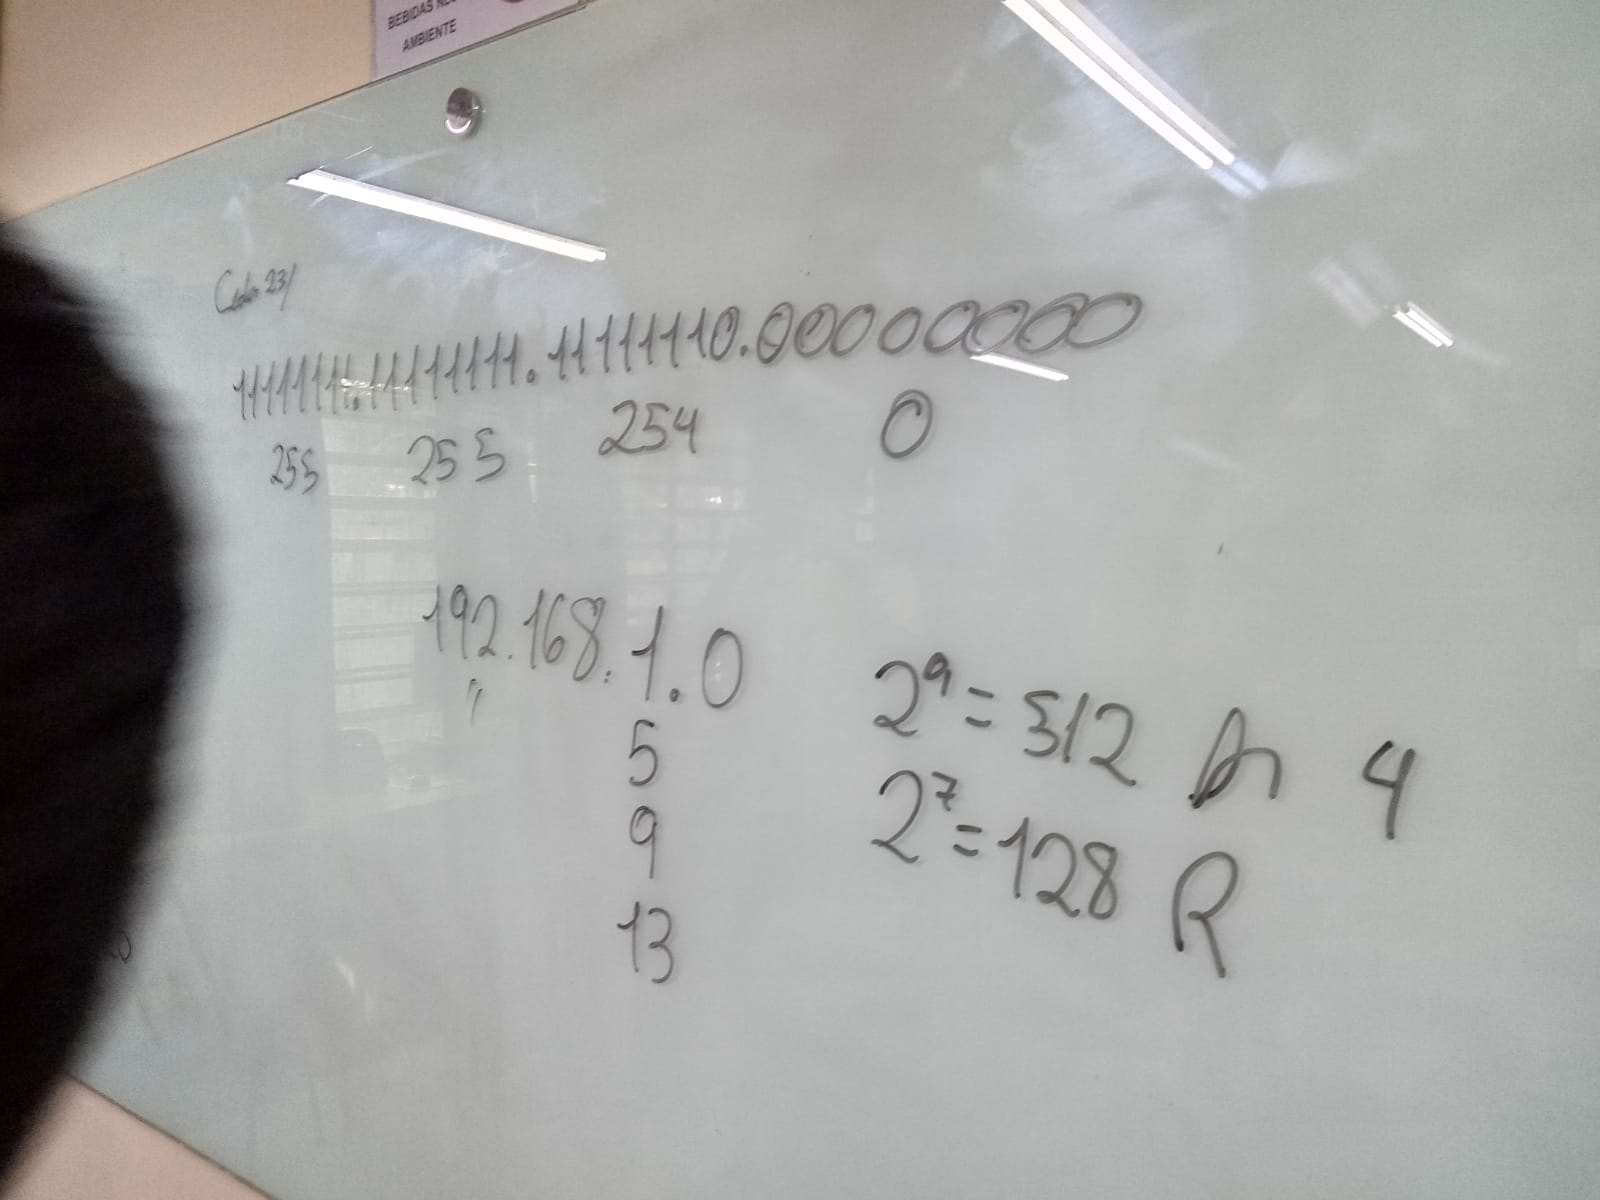 BEBIDAS
AMBIENTE
23/
11111111.11111111.11111110.00000000
255 255 254 0
192.168.1.0
"
5
9
13
2⁹=512 4
2⁷=128 R